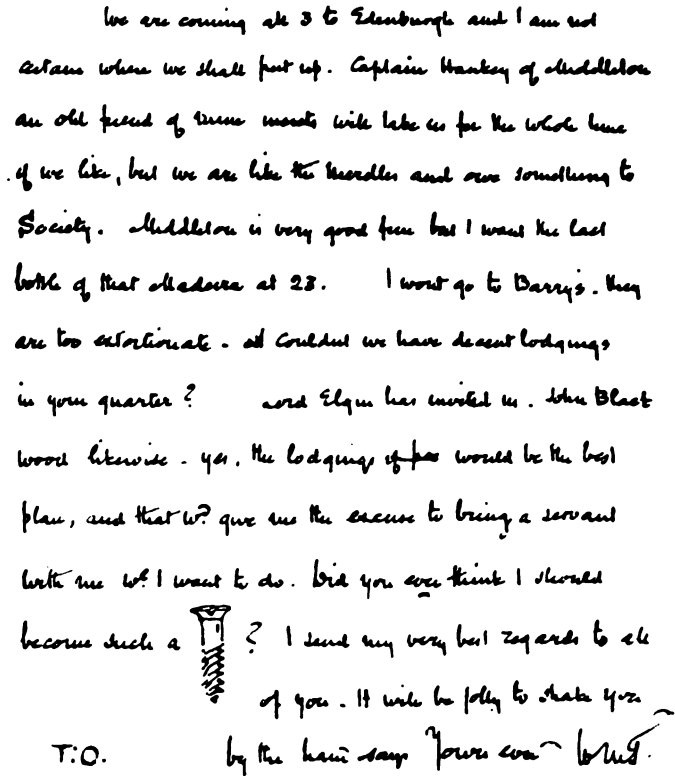 We are coming all 3 to Edenburogh and I am not
certain where we shall put up. Captain Hankey of Middleton
an old friend of mine wants will take us for the whole time
if we like, but we are like the Merdles and owe something to
Society. Middleton is very good fun but I want the last
bottle of that Madeira at 28. I wont go to Barry's. they
are too extortionate. Couldnt we have decent lodgings
in your quarter? Lord Elgin has invited us. John Black
wood likewise. yes, the lodgings would be the best
plan, and that wd. give me the excuse to bring a servant
with me wh. I want to do. Did you ever think I should
become such a ? I send my very best regards to all
of you. It will be jolly to shake you
by the hand says Yours ever
T.O.